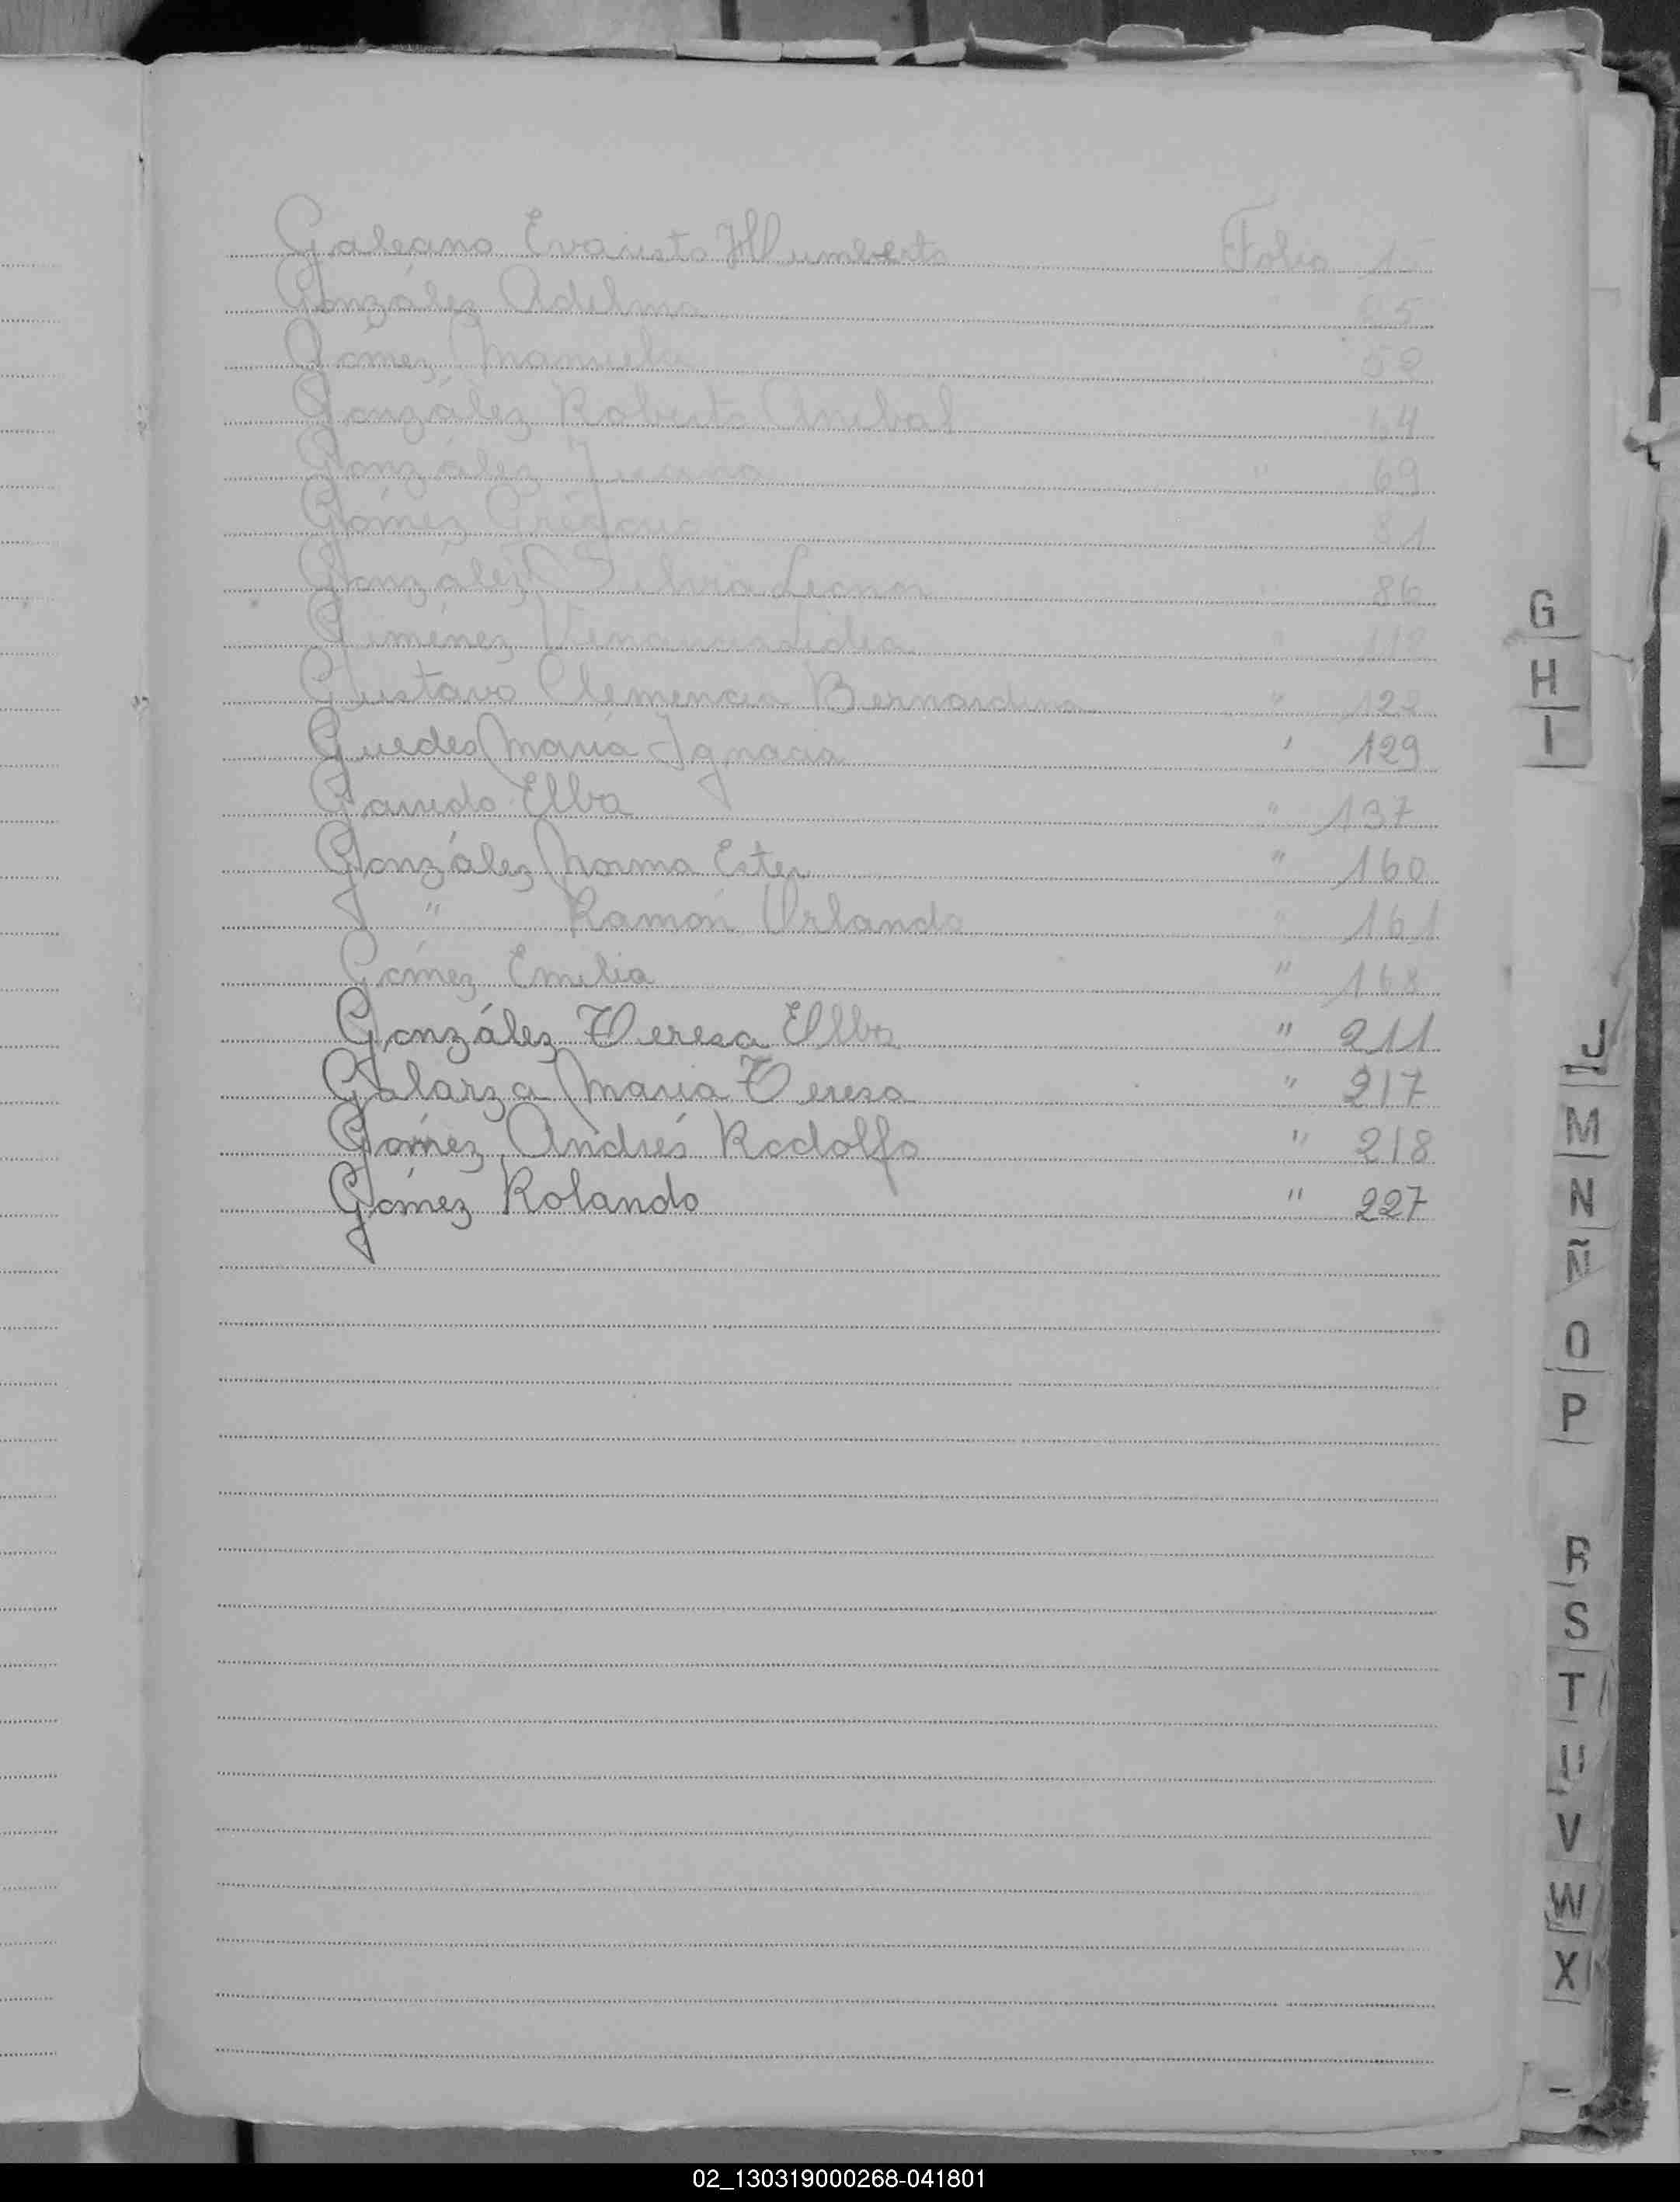 Galeano Evaristo Humberto Folio 1
González Adelma 25
Gómez Manuela 59
González Roberto Anibal 64
González Juana " 69
Gómez Gregorio 81
González Silvia Leonor 86
Giménez Venancia Lidia " 118
Gustavo Clemencia Bernardina " 122
Guedes María Ignacia " 129
Garrido Elba " 137
González Norma Ester " 160
" Ramón Orlando " 161
Gómez Emilia " 168
González Teresa Elba " 211
Galarza María Teresa " 217
Gómez Andrés Rodolfo " 218
Gómez Rolando " 227
G
H
I
J
M
N
Ñ
O
P
R
S
T
U
V
W
X
02_130319000268-041801